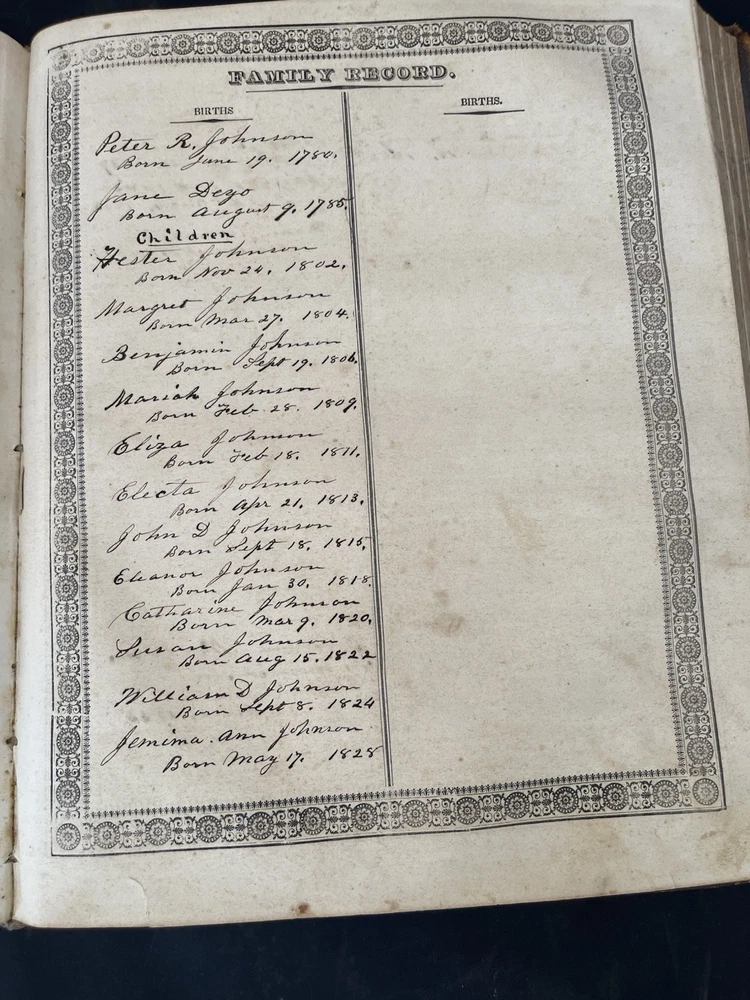 FAMILY RECORD.
BIRTHS
Peter R. Johnson
Born June 19. 1780.
Jane Deyo
Born August 9. 1785.
Children
Hester Johnson
Born Nov 24. 1802.
Margret Johnson
Born Mar 27. 1804.
Benjamin Johnson
Born Sept 19. 1806.
Mariah Johnson
Born Feb 28. 1809.
Eliza Johnson
Born Feb 18. 1811.
Electa Johnson
Born Apr 21. 1813.
John D Johnson
Born Sept 18. 1815.
Eleanor Johnson
Born Jan 30. 1818.
Catharine Johnson
Born Mar 9. 1820.
Susan Johnson
Born Aug 15. 1822
William D Johnson
Born Sept 8. 1824
Jemima. Ann Johnson
Born May 17. 1828
BIRTHS.